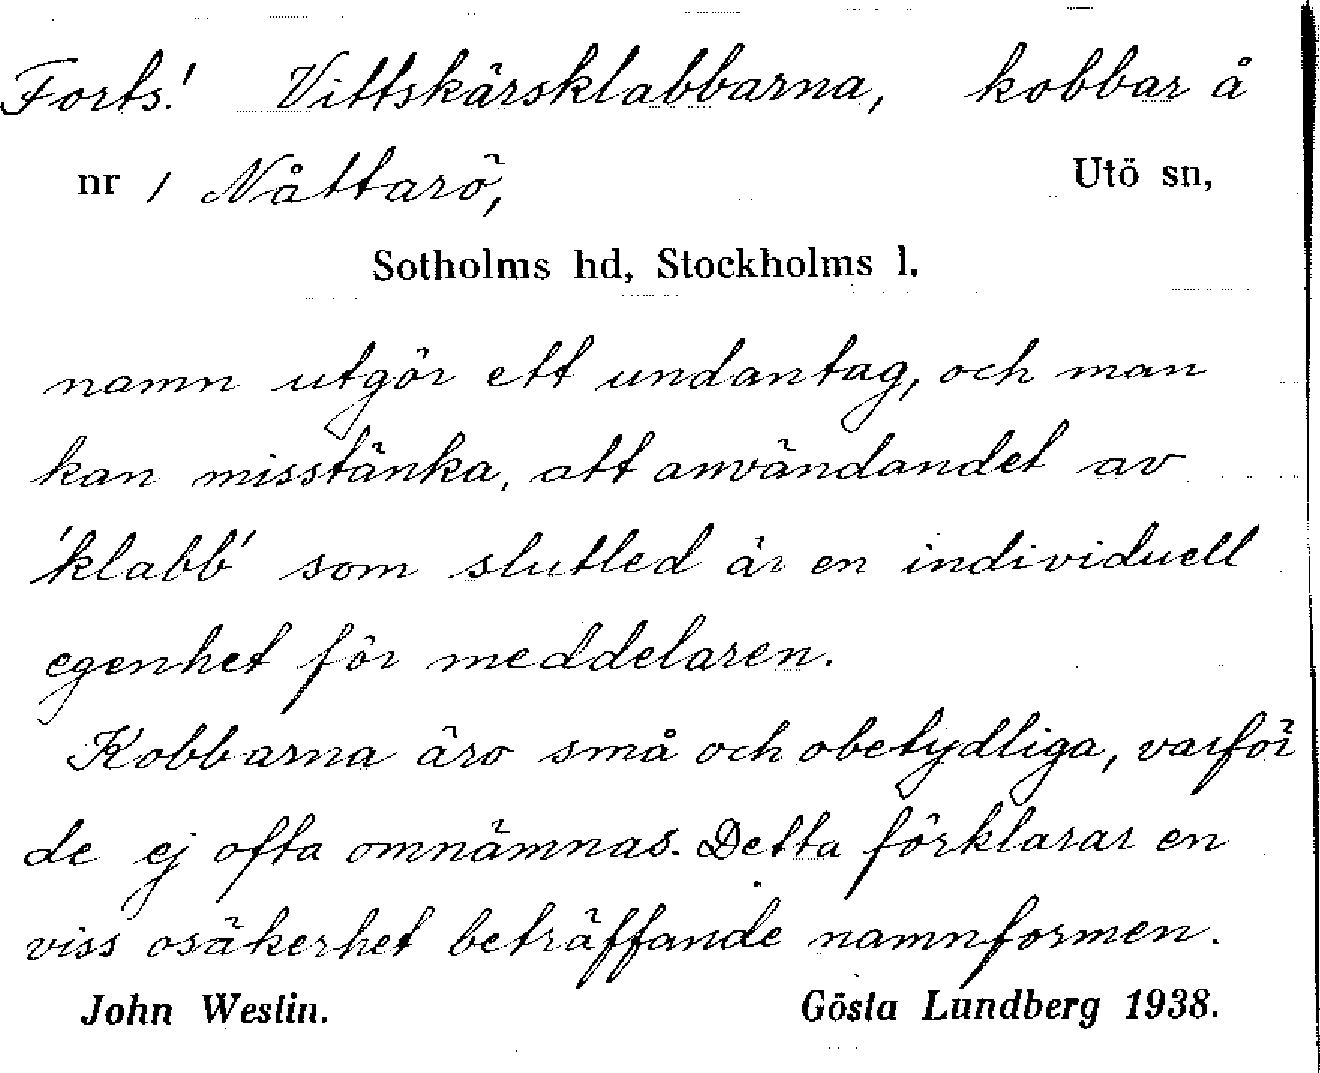 Forts.! Vittskärsklabbarna, kobbar å
nr 1 Nåttarö, Utö sn,
Sotholms hd, Stockholms l.
namn utgör ett undantag, och man
kan misstänka, att användandet av
'klabb' som slutled är en individuell
egenhet för meddelaren.
Kobbarna äro små och obetydliga, varför
de ej ofta omnämnas. Detta förklarar en
viss osäkerhet beträffande namnformen.
John Westin. Gösta Lundberg 1938.